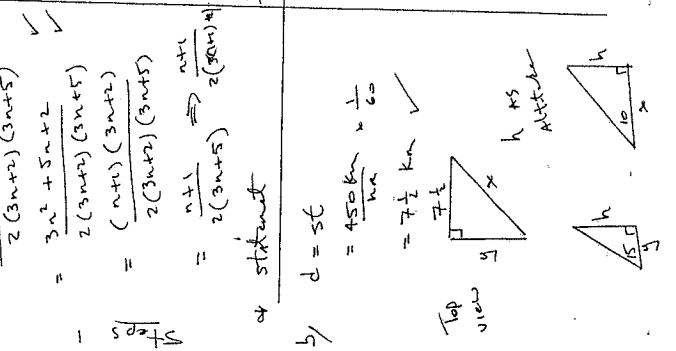 2(3n+2)(3n+5)
= 3n² + 5n + 2
2(3n+2)(3n+5)
= (n+1)(3n+2)
2(3n+2)(3n+5)
= n+1 ⇒ n+1
2(3n+5) 2(3(n+1)+
Steps
* statement
b/ d = st
= 450 km × 1
hr 60
= 7½ km ✓
Top
view
7½
y
x
h as
Altitude
h
15
y
h
10
x